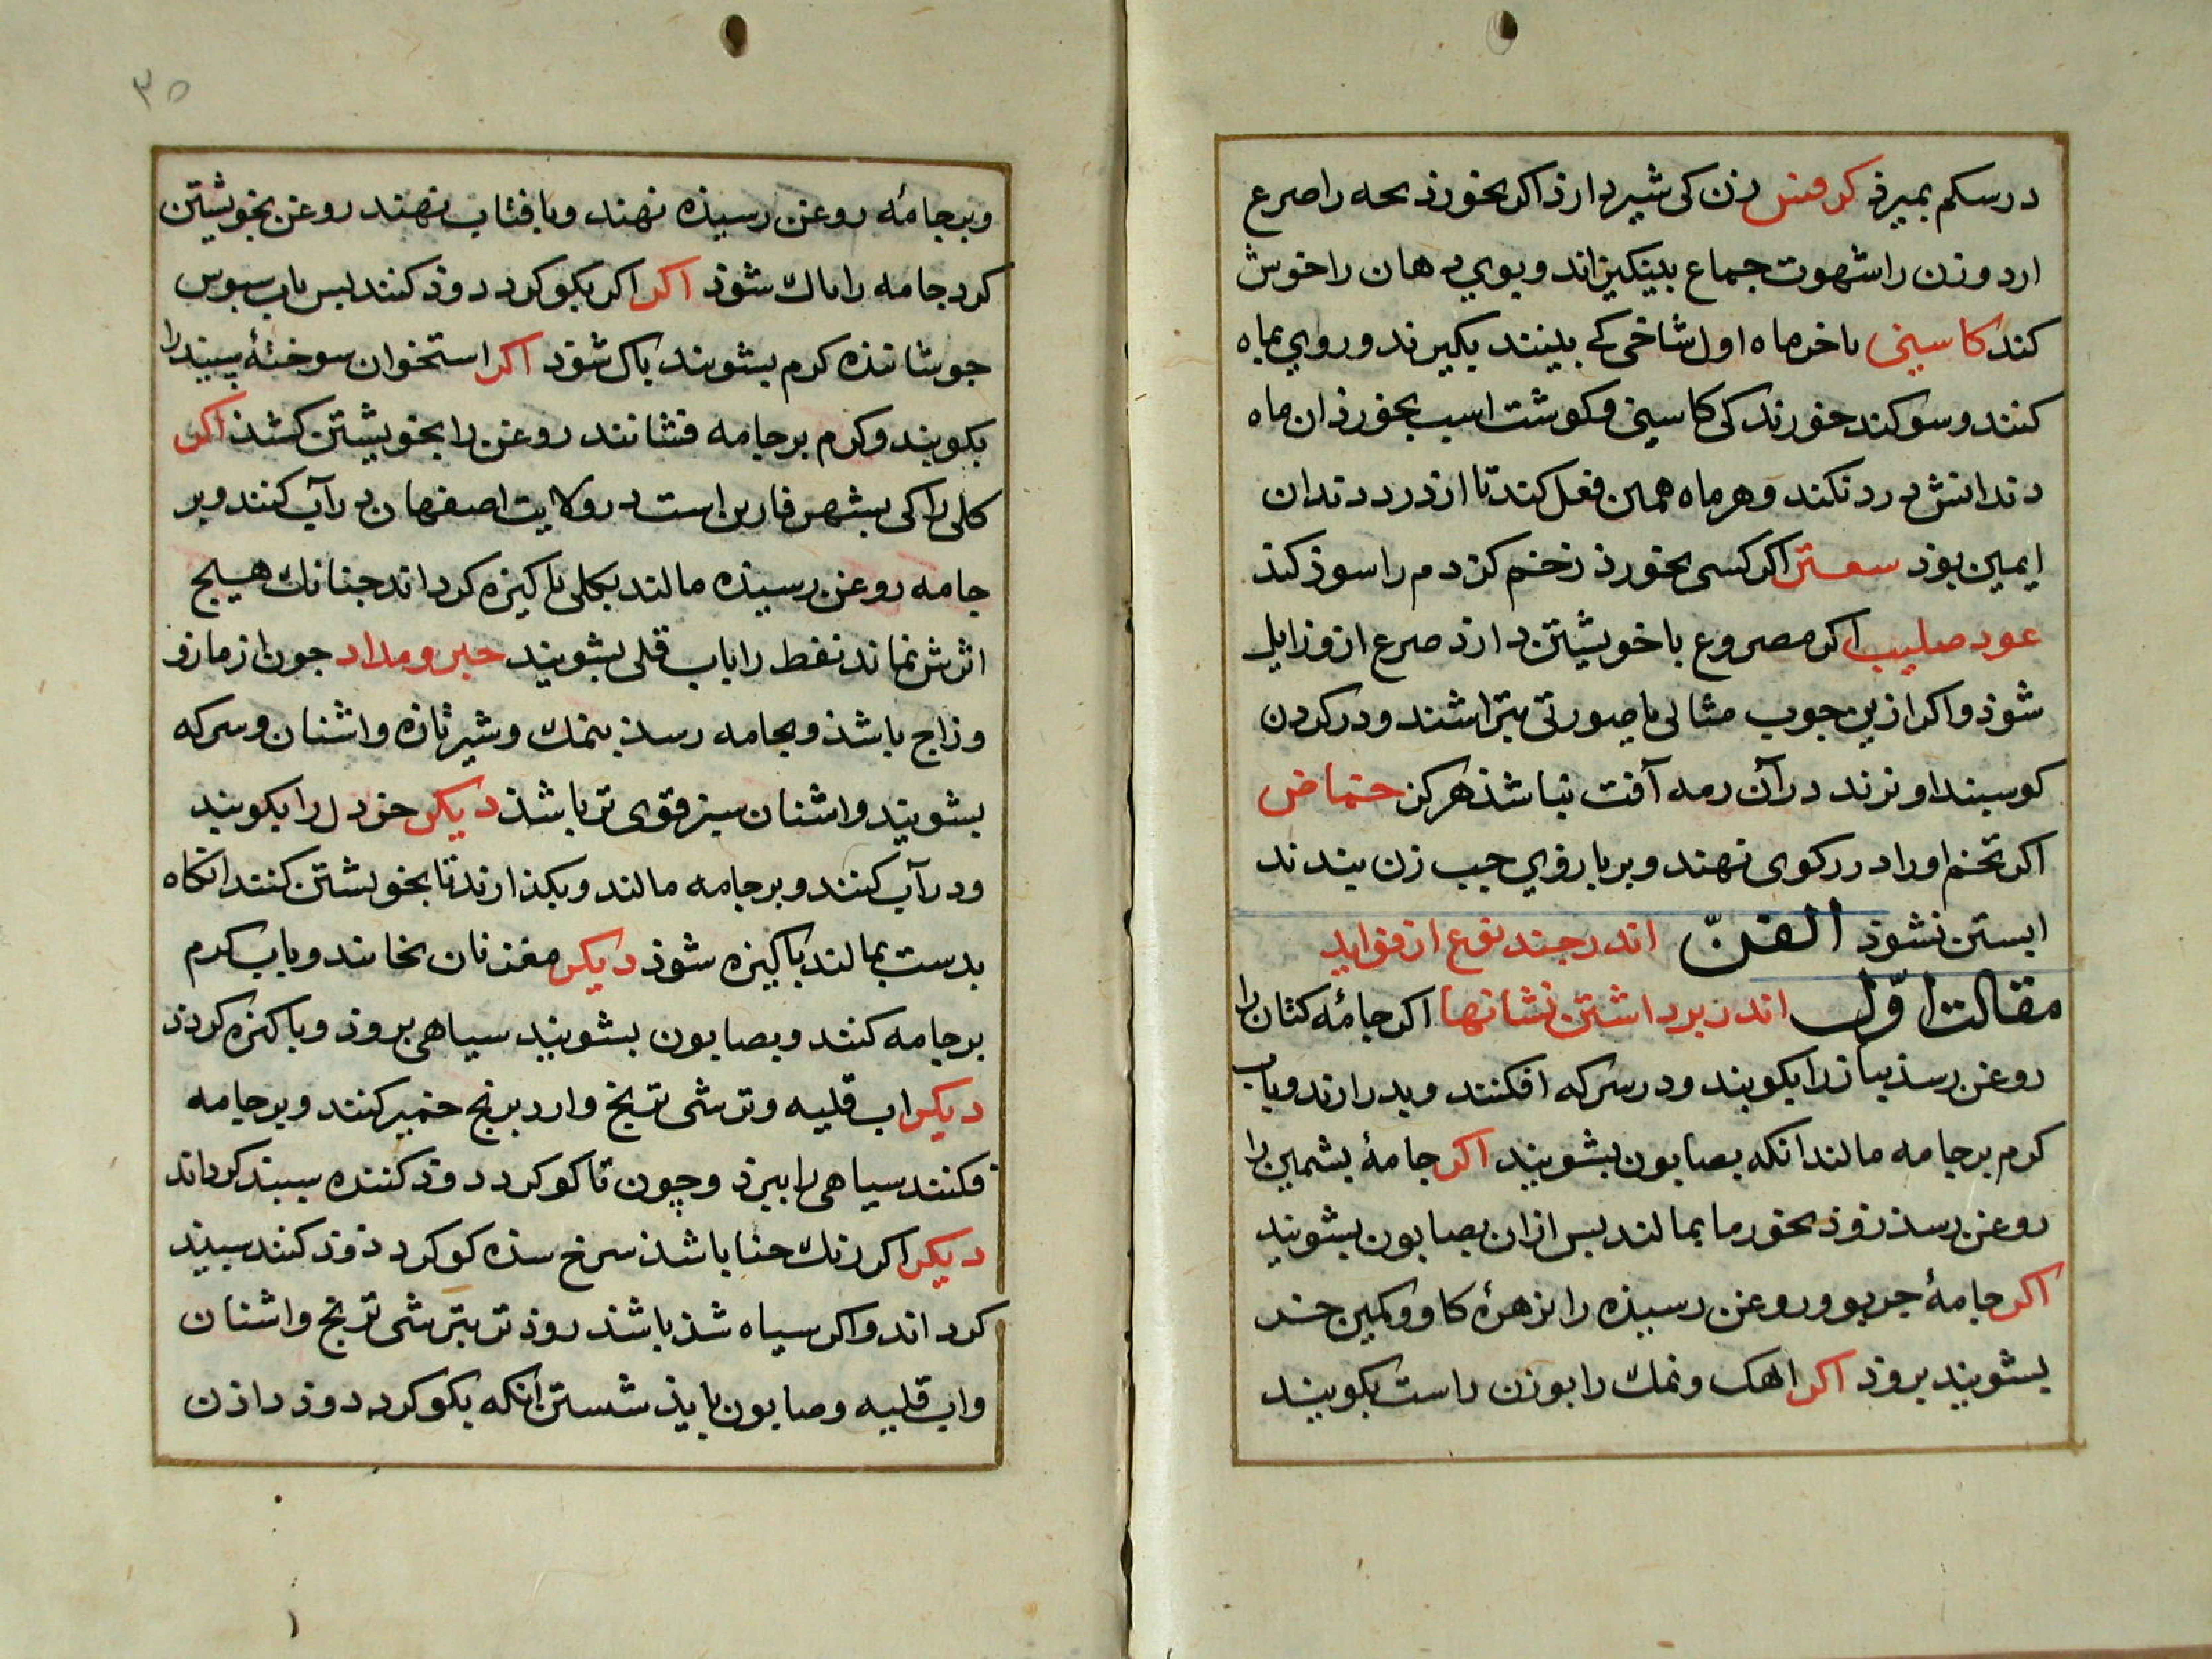 در سکم بمیرذ کرفس زن کی شیر دارذ اکر بخورذ بحه را صرع
ارد و زن را شهوت جماع بینکیزاند و بوی دهان را خوش
کند کاسنی باخر ماه اول شاخی که بینند بکیرند و روی بماه
کنند و سوکند خورند کی کاسنی و کوشت اسب نخورذ ان ماه
دندانش درد نکند و هر ماه همین فعل کند تا از درد دندان
ایمین بوذ سعتر اکر کسی بخورذ زخم کزدم را سوذ کند
عود صلیب اکر مصروع با خویشتن دارذ صرع ازو زایل
شوذ و اکر ازین جوب مثالی یا صورتی بتراشند و در کردن
کوسبند اویزند در آن رمه آفت نباشذ هرکز حماض
اکر تخم او را در رکوی نهند و بر بازوی جب زن بندند
ابستن نشوذ الفن اندر جند نوع از فواید
مقالت اول اندر برداشتن نشانها اکر جامۀ کتان را
روغن رسذ بیاز را بکوبند و در سرکه افکنند و بدرارند و باب
کرم بر جامه مالند انکه بصابون بشویند اکر جامۀ بشمین را
روغن رسذ زوذ بخورما بمالند بس ازان بصابون بشویند
اکر جامۀ حریر و روغن رسیذه را بزهرۀ کاو و کمیز خر
بشویند بروذ اکر اهک و نمک را بوزن راست بکوبند
۳۵
و بر جامۀ روغن رسیذه نهند و بافتاب نهند روغن بخویشتن
کرد جامه را باک شوذ اکر اکر بکوکرد دوذ کنند بس باب سبوس
جوشانذه کرم بشویند باک شوذ اکر استخوان سوختۀ سبید را
بکوبند و کرم بر جامه فشانند روغن را بخویشتن کشذ اکر
کلی را کی بشهر فارین است در ولایت اصفهان در آب کنند و بر
جامه روغن رسیذه مالند بکلی باکیزه کرداند جنانک هیچ
اثرش نماند نفط را باب قلی بشویند حبر و مداد جون از مازو
و زاج باشذ و بجامه رسذ بنمک و شیر تازه و اشنان و سرکه
بشویند و اشنان سبز قوی تر باشذ دیکر خردل را بکوبند
و در آب کنند و بر جامه مالند و بکذارند تا بخویشتن کشد انکاه
بدست بمالند باکیزه شوذ دیکر مغز نان بخایند و باب کرم
بر جامه کنند و بصابون بشویند سیاهی بروذ و باکیزه کردد
دیکر اب قلیه و ترشی ترنج و ارد برنج خمیر کنند و بر جامه
فکنند سیاهی را ببرذ و چون تا کوکرد دوذ کننده سبید کرداند
دیکر اکر رنک حنا باشذ سرخ سذه کوکرد دوذ کنند سبید
کرداند و اکر سیاه شذ باشذ روذ تر بترشی ترنج و اشنان
و اب قلیه و صابون بایذ شستن انکه بکوکرد دوذ داذن